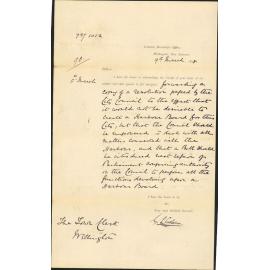 Colonial Secretary's Office,
Wellington, New Zealand,
9th March
I have the honor to acknowledge the receipt of your letter of the
forwarding a
copy of a resolution passed by the
City Council to the effect that
it would not be desirable to
create a Harbour Board for this
City, but that the Council should
be empowered to deal with all
matters connected with the
Harbour, and that a Bill should
be introduced next session of
Parliament conferring authority
on the Council to perform all the
functions devolving upon a
Harbour Board.
I have the honor to be,
Sir,
Your most obedient Servant,
The Town Clerk
Wellington